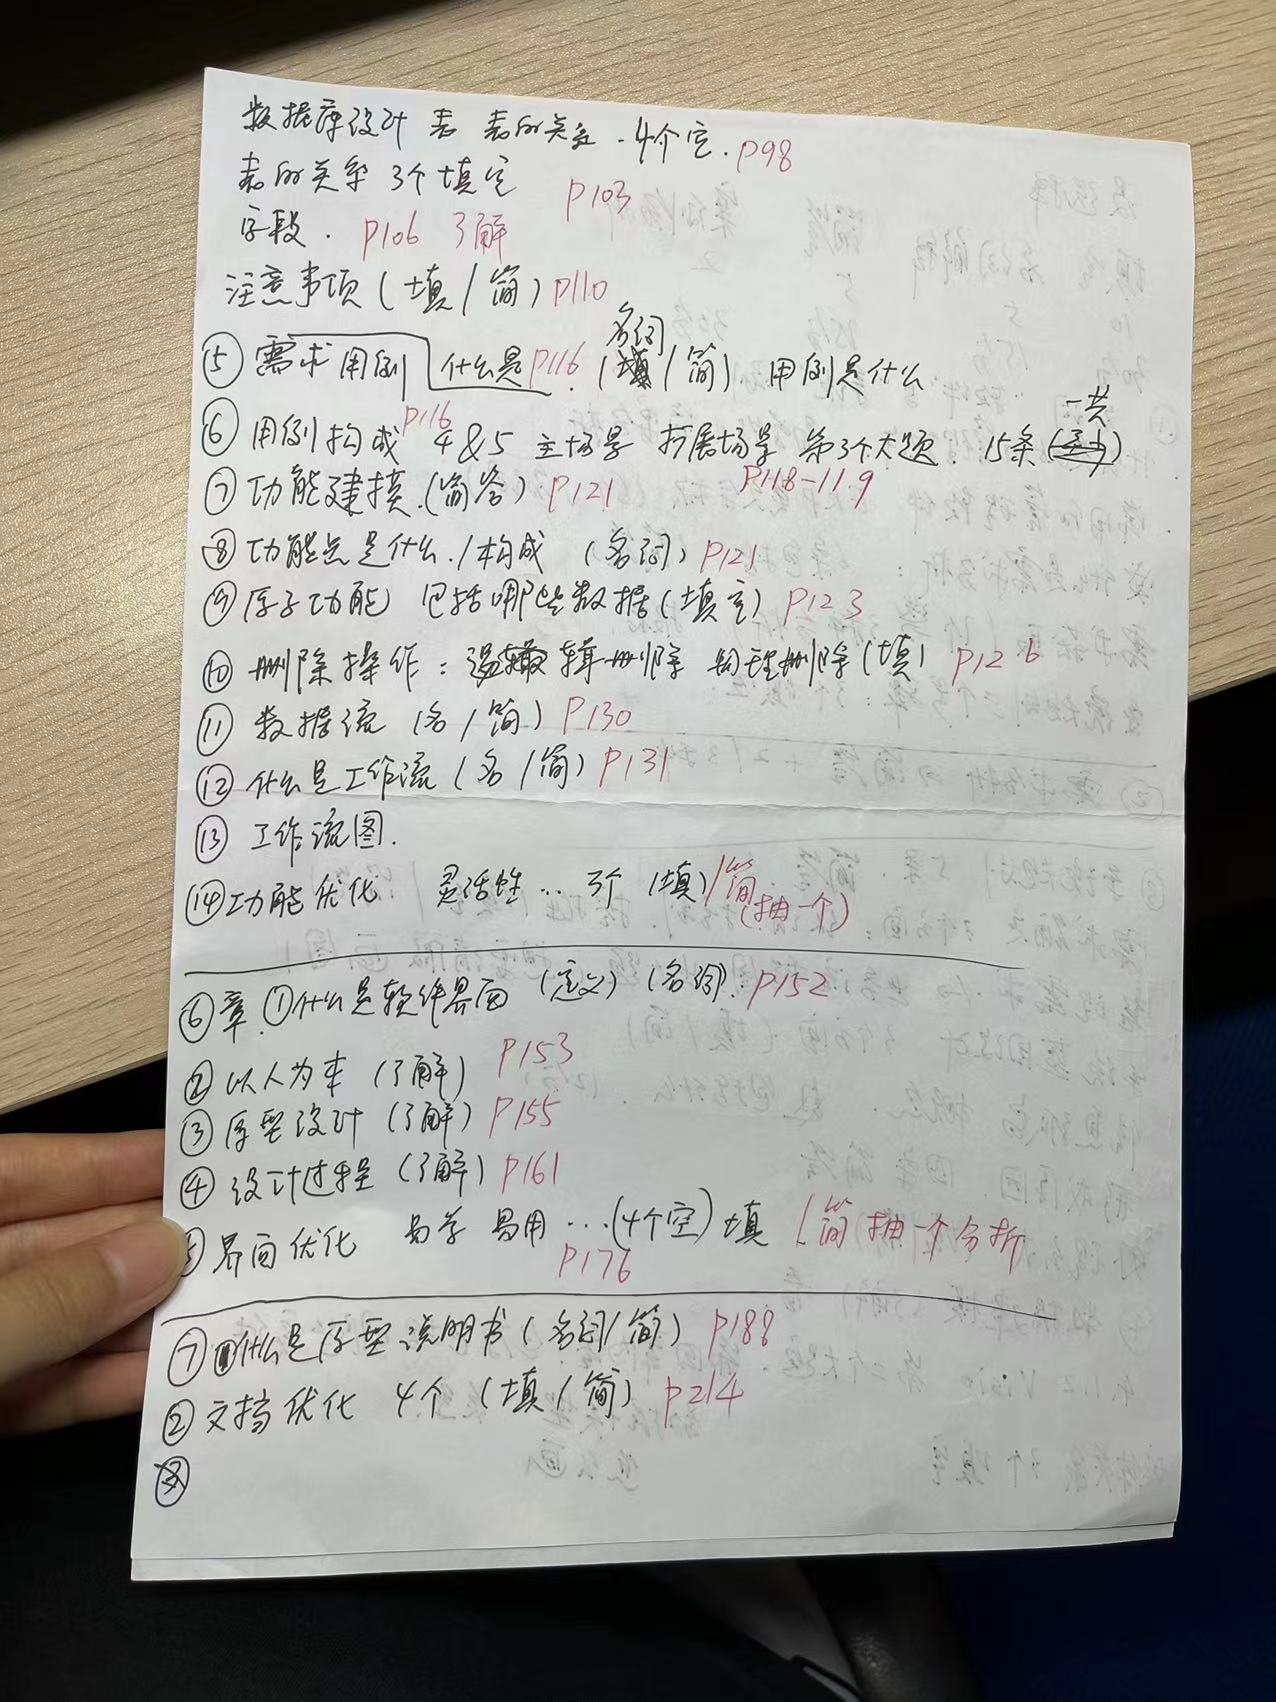 数据库设计 表 表的关系. 4个空. P98
表的关系 3个填空 P103
字段. P106 了解
注意事项(填/简) P110
⑤ 需求用例 什么是 P116. (名词/简) 用例是什么
⑥ 用例构成 P116 4&5 主场景 扩展场景 第3个大题. 15条(一共)
P118-119
⑦ 功能建模.(简答) P121
⑧ 功能点是什么./构成 (名词) P121
⑨ 原子功能 包括哪些数据(填空) P123
⑩ 删除操作:逻辑删除 物理删除(填) P126
⑪ 数据流 (名/简) P130
⑫ 什么是工作流(名/简) P131
⑬ 工作流图.
⑭ 功能优化 灵活性... 3个 (填)/简(抽一个)
⑥章.①什么是软件界面 (定义)(名词). P152
② 以人为本 (了解) P153
③ 原型设计 (了解) P155
④ 设计过程 (了解) P161
⑤ 界面优化 易学 易用...(4个空)填 /简 抽一个分析
P176
⑦ ①什么是原型说明书(名词/简) P188
② 文档优化 4个 (填/简) P214